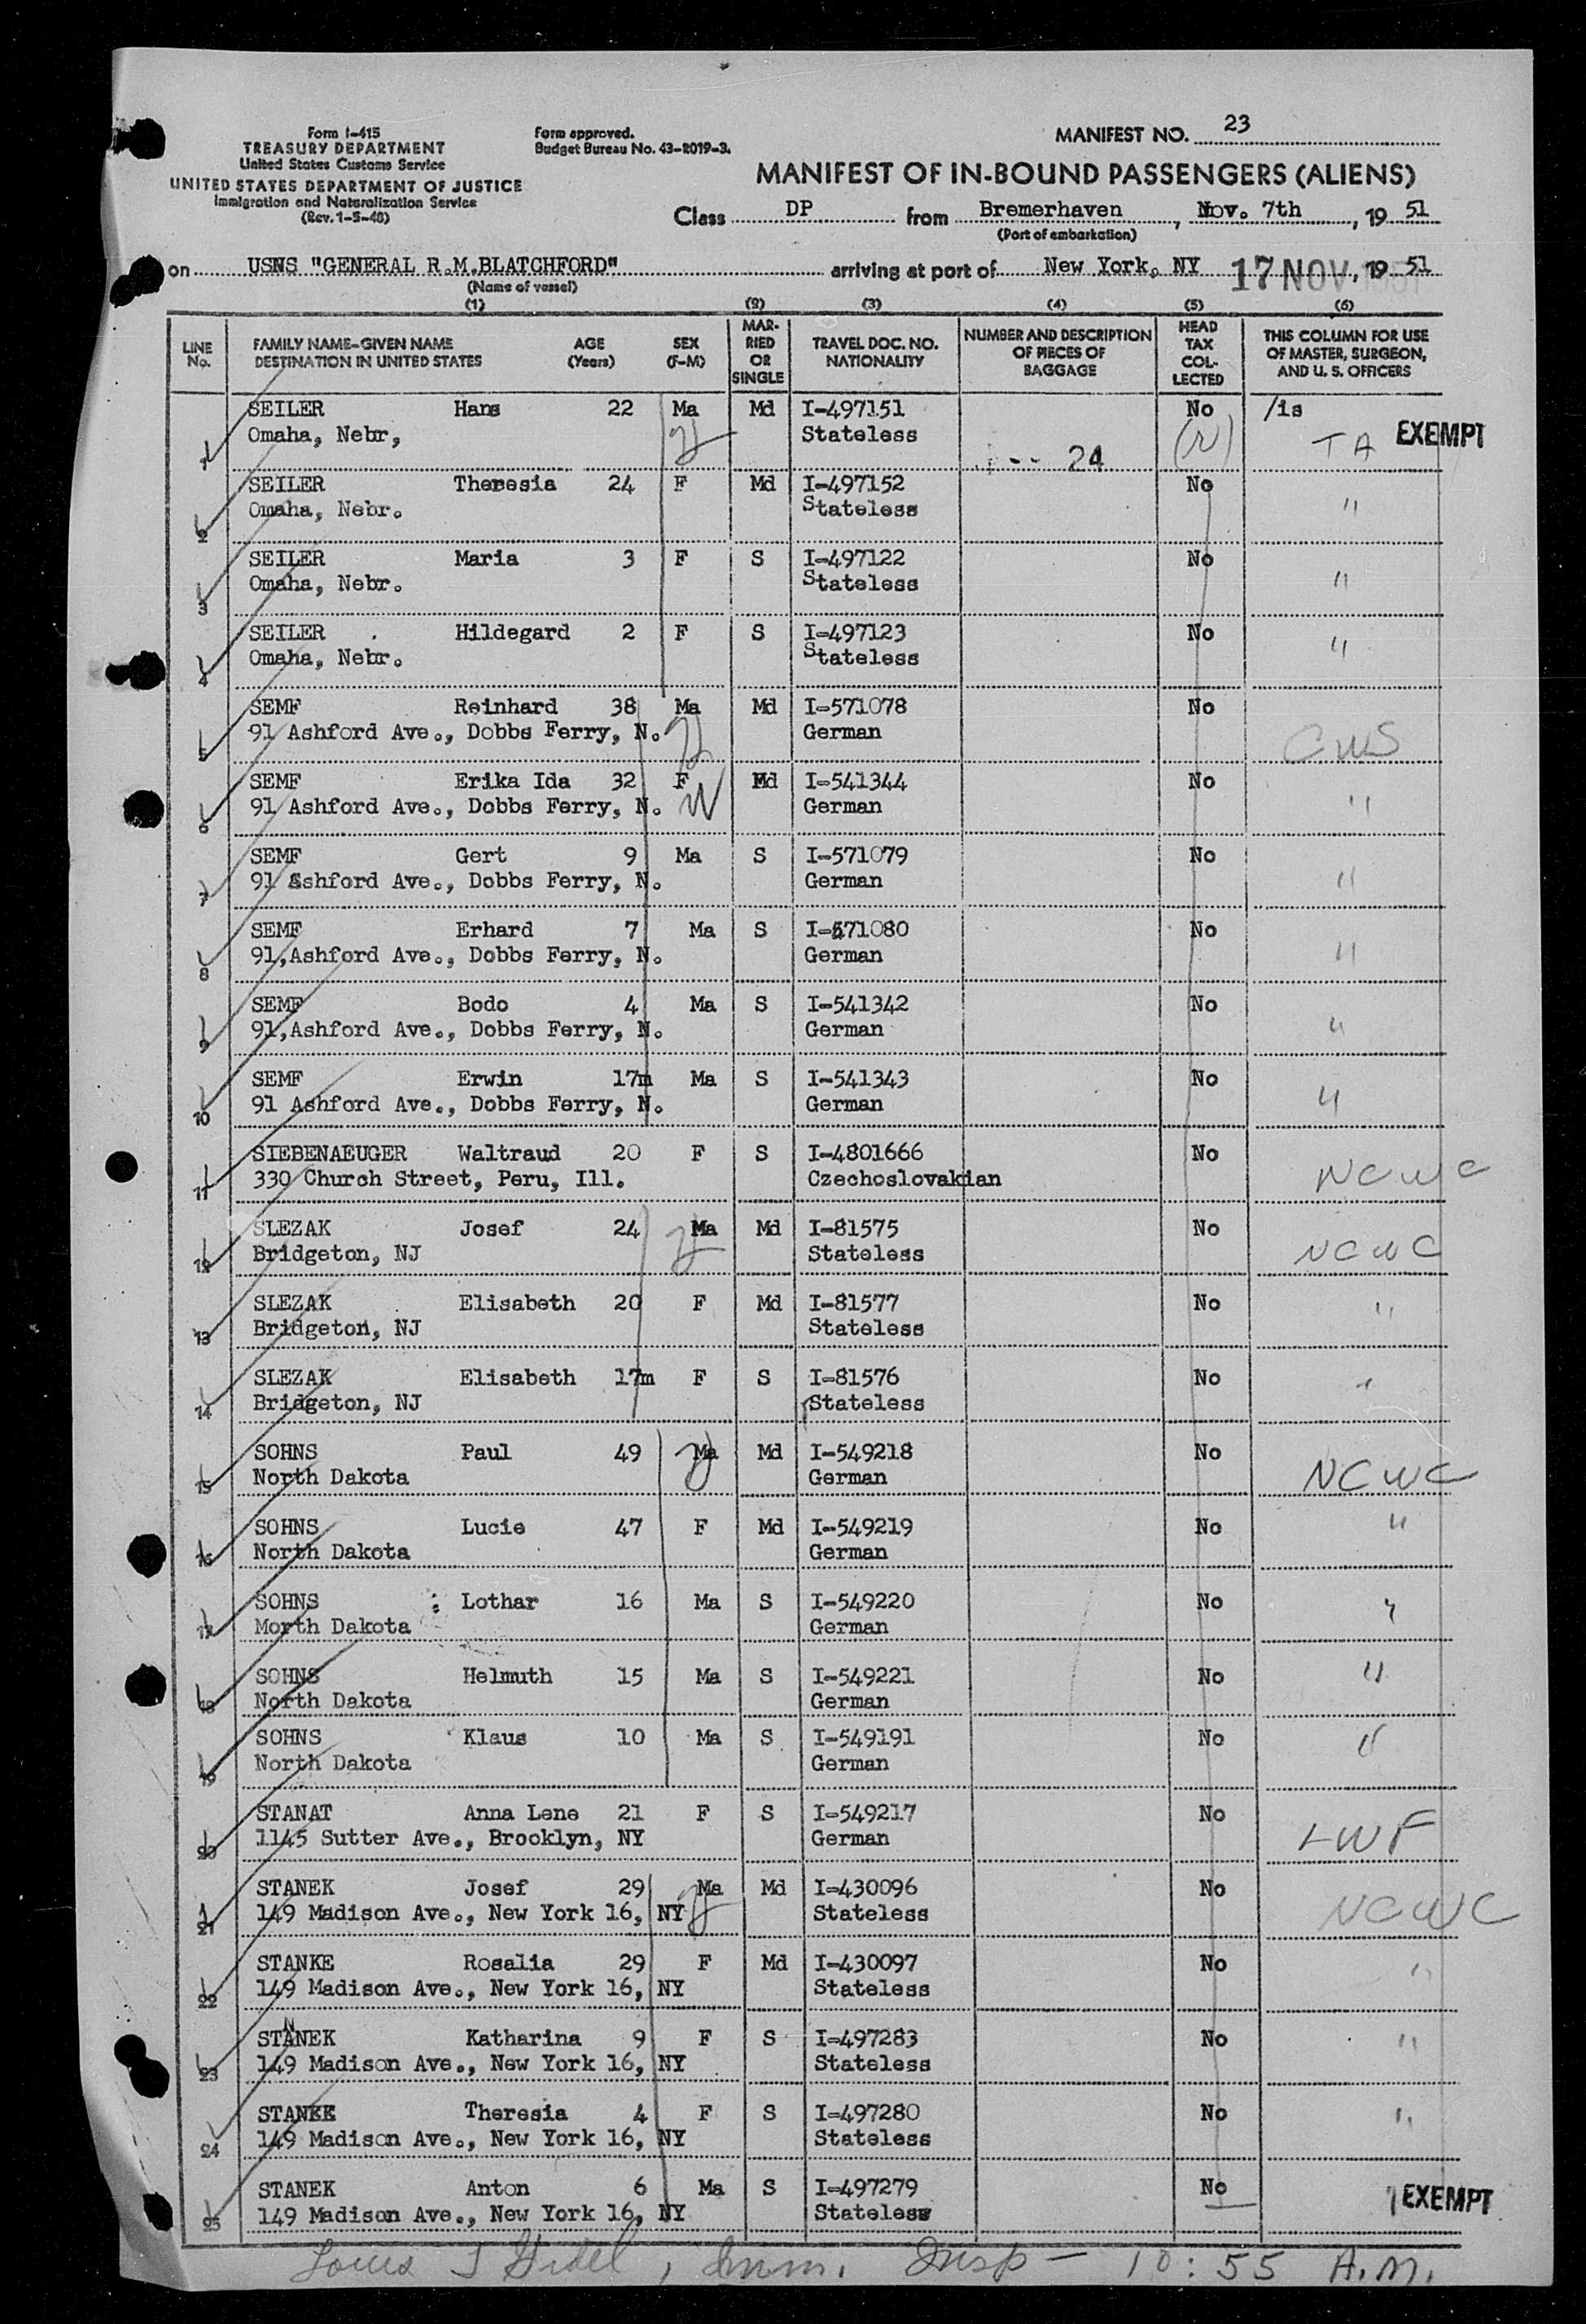 Form I-415
TREASURY DEPARTMENT
United States Customs Service
UNITED STATES DEPARTMENT OF JUSTICE
Immigration and Naturalization Service
(Rev. 1-5-48)
Form approved.
Budget Bureau No. 43-R019-3.
MANIFEST NO. 23
MANIFEST OF IN-BOUND PASSENGERS (ALIENS)
Class DP from Bremerhaven, Nov. 7th, 19 51
(Port of embarkation)
on USNS "GENERAL R.M.BLATCHFORD" arriving at port of New York, NY 17 NOV 1951, 19 51
(Name of vessel)
(1) (2) (3) (4) (5) (6)
LINE No. FAMILY NAME-GIVEN NAME DESTINATION IN UNITED STATES AGE (Years) SEX (F-M) MARRIED OR SINGLE TRAVEL DOC. NO. NATIONALITY NUMBER AND DESCRIPTION OF PIECES OF BAGGAGE HEAD TAX COLLECTED THIS COLUMN FOR USE OF MASTER, SURGEON, AND U. S. OFFICERS
1 SEILER Hans 22 Ma Md I-497151 No /is
Omaha, Nebr, Stateless 24 (N) TA EXEMPT
2 SEILER Theresia 24 F Md I-497152 No
Omaha, Nebr. Stateless "
3 SEILER Maria 3 F S I-497122 No
Omaha, Nebr. Stateless "
4 SEILER Hildegard 2 F S I-497123 No
Omaha, Nebr. Stateless "
5 SEMF Reinhard 38 Ma Md I-571078 No
91 Ashford Ave., Dobbs Ferry, N. German CWS
6 SEMF Erika Ida 32 F Md I-541344 No
91 Ashford Ave., Dobbs Ferry, N. German "
7 SEMF Gert 9 Ma S I-571079 No
91 Ashford Ave., Dobbs Ferry, N. German "
8 SEMF Erhard 7 Ma S I-571080 No
91,Ashford Ave., Dobbs Ferry, N. German "
9 SEMF Bodo 4 Ma S I-541342 No
91,Ashford Ave., Dobbs Ferry, N. German "
10 SEMF Erwin 17m Ma S I-541343 No
91 Ashford Ave., Dobbs Ferry, N. German "
11 SIEBENAEUGER Waltraud 20 F S I-4801666 No
330 Church Street, Peru, Ill. Czechoslovakian NCWC
12 SLEZAK Josef 24 Ma Md I-81575 No
Bridgeton, NJ Stateless NCWC
13 SLEZAK Elisabeth 20 F Md I-81577 No
Bridgeton, NJ Stateless "
14 SLEZAK Elisabeth 17m F S I-81576 No
Bridgeton, NJ Stateless "
15 SOHNS Paul 49 Ma Md I-549218 No
North Dakota German NCWC
16 SOHNS Lucie 47 F Md I-549219 No
North Dakota German "
17 SOHNS : Lothar 16 Ma S I-549220 No
Morth Dakota German "
18 SOHNS Helmuth 15 Ma S I-549221 No
North Dakota German "
19 SOHNS Klaus 10 Ma S I-549191 No
North Dakota German "
20 STANAT Anna Lene 21 F S I-549217 No
1145 Sutter Ave., Brooklyn, NY German LWF
21 STANEK Josef 29 Ma Md I-430096 No
149 Madison Ave., New York 16, NY Stateless NCWC
22 STANKE Rosalia 29 F Md I-430097 No
149 Madison Ave., New York 16, NY Stateless "
23 STANEK Katharina 9 F S I-497283 No
149 Madison Ave., New York 16, NY Stateless "
24 STANEK Theresia 4 F S I-497280 No
149 Madison Ave., New York 16, NY Stateless "
25 STANEK Anton 6 Ma S I-497279 No
149 Madison Ave., New York 16, NY Stateless EXEMPT
Louis , Imm. Insp - 10:55 A.M.